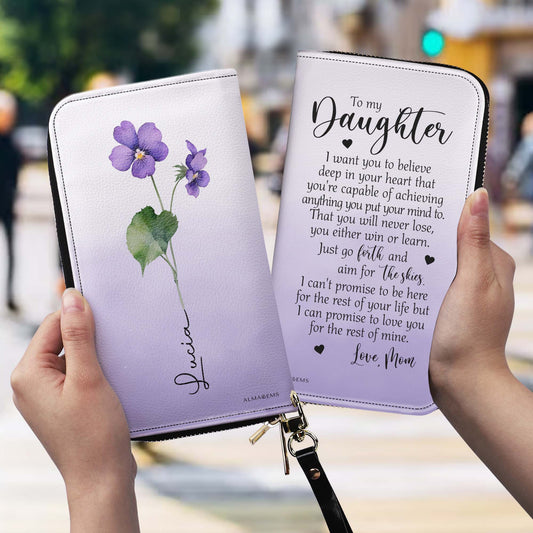 Lucia
ALMAGEMS
To my
Daughter
I want you to believe
deep in your heart that
you're capable of achieving
anything you put your mind to.
That you will never lose,
you either win or learn.
Just go forth and
aim for the skies.
I can't promise to be here
for the rest of your life but
I can promise to love you
for the rest of mine.
Love, Mom
ALMAGEMS